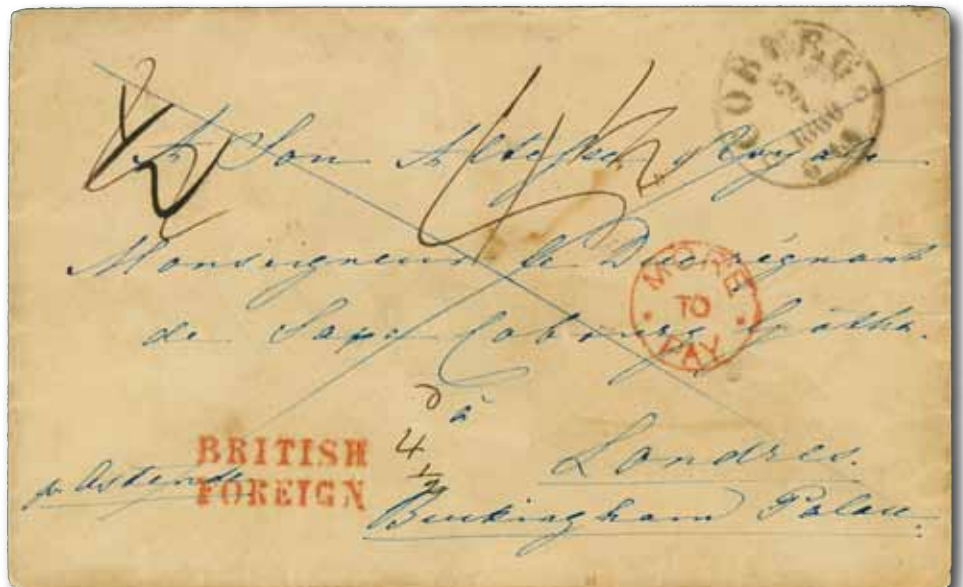 COBURG
A Son Altesse Royale
Monseigneur le Duc régnant
de Saxe Cobourg Gotha.
MORE
TO
PAY
à
4 1/2
BRITISH
FOREIGN
Londres.
p. Ostende
Buckingham Palace.